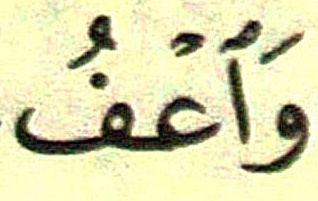 وَٱعْفُ